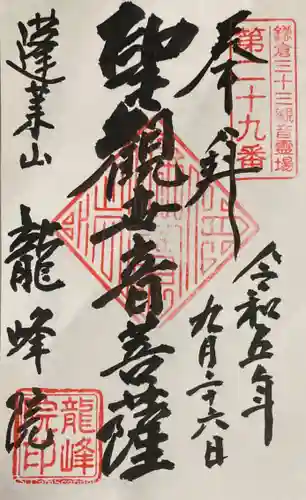 奉拝
鎌倉三十三観音霊場
第二十九番
令和五年
九月二十六日
聖観世音菩薩
蓬莱山
龍峰院
龍峰
院印